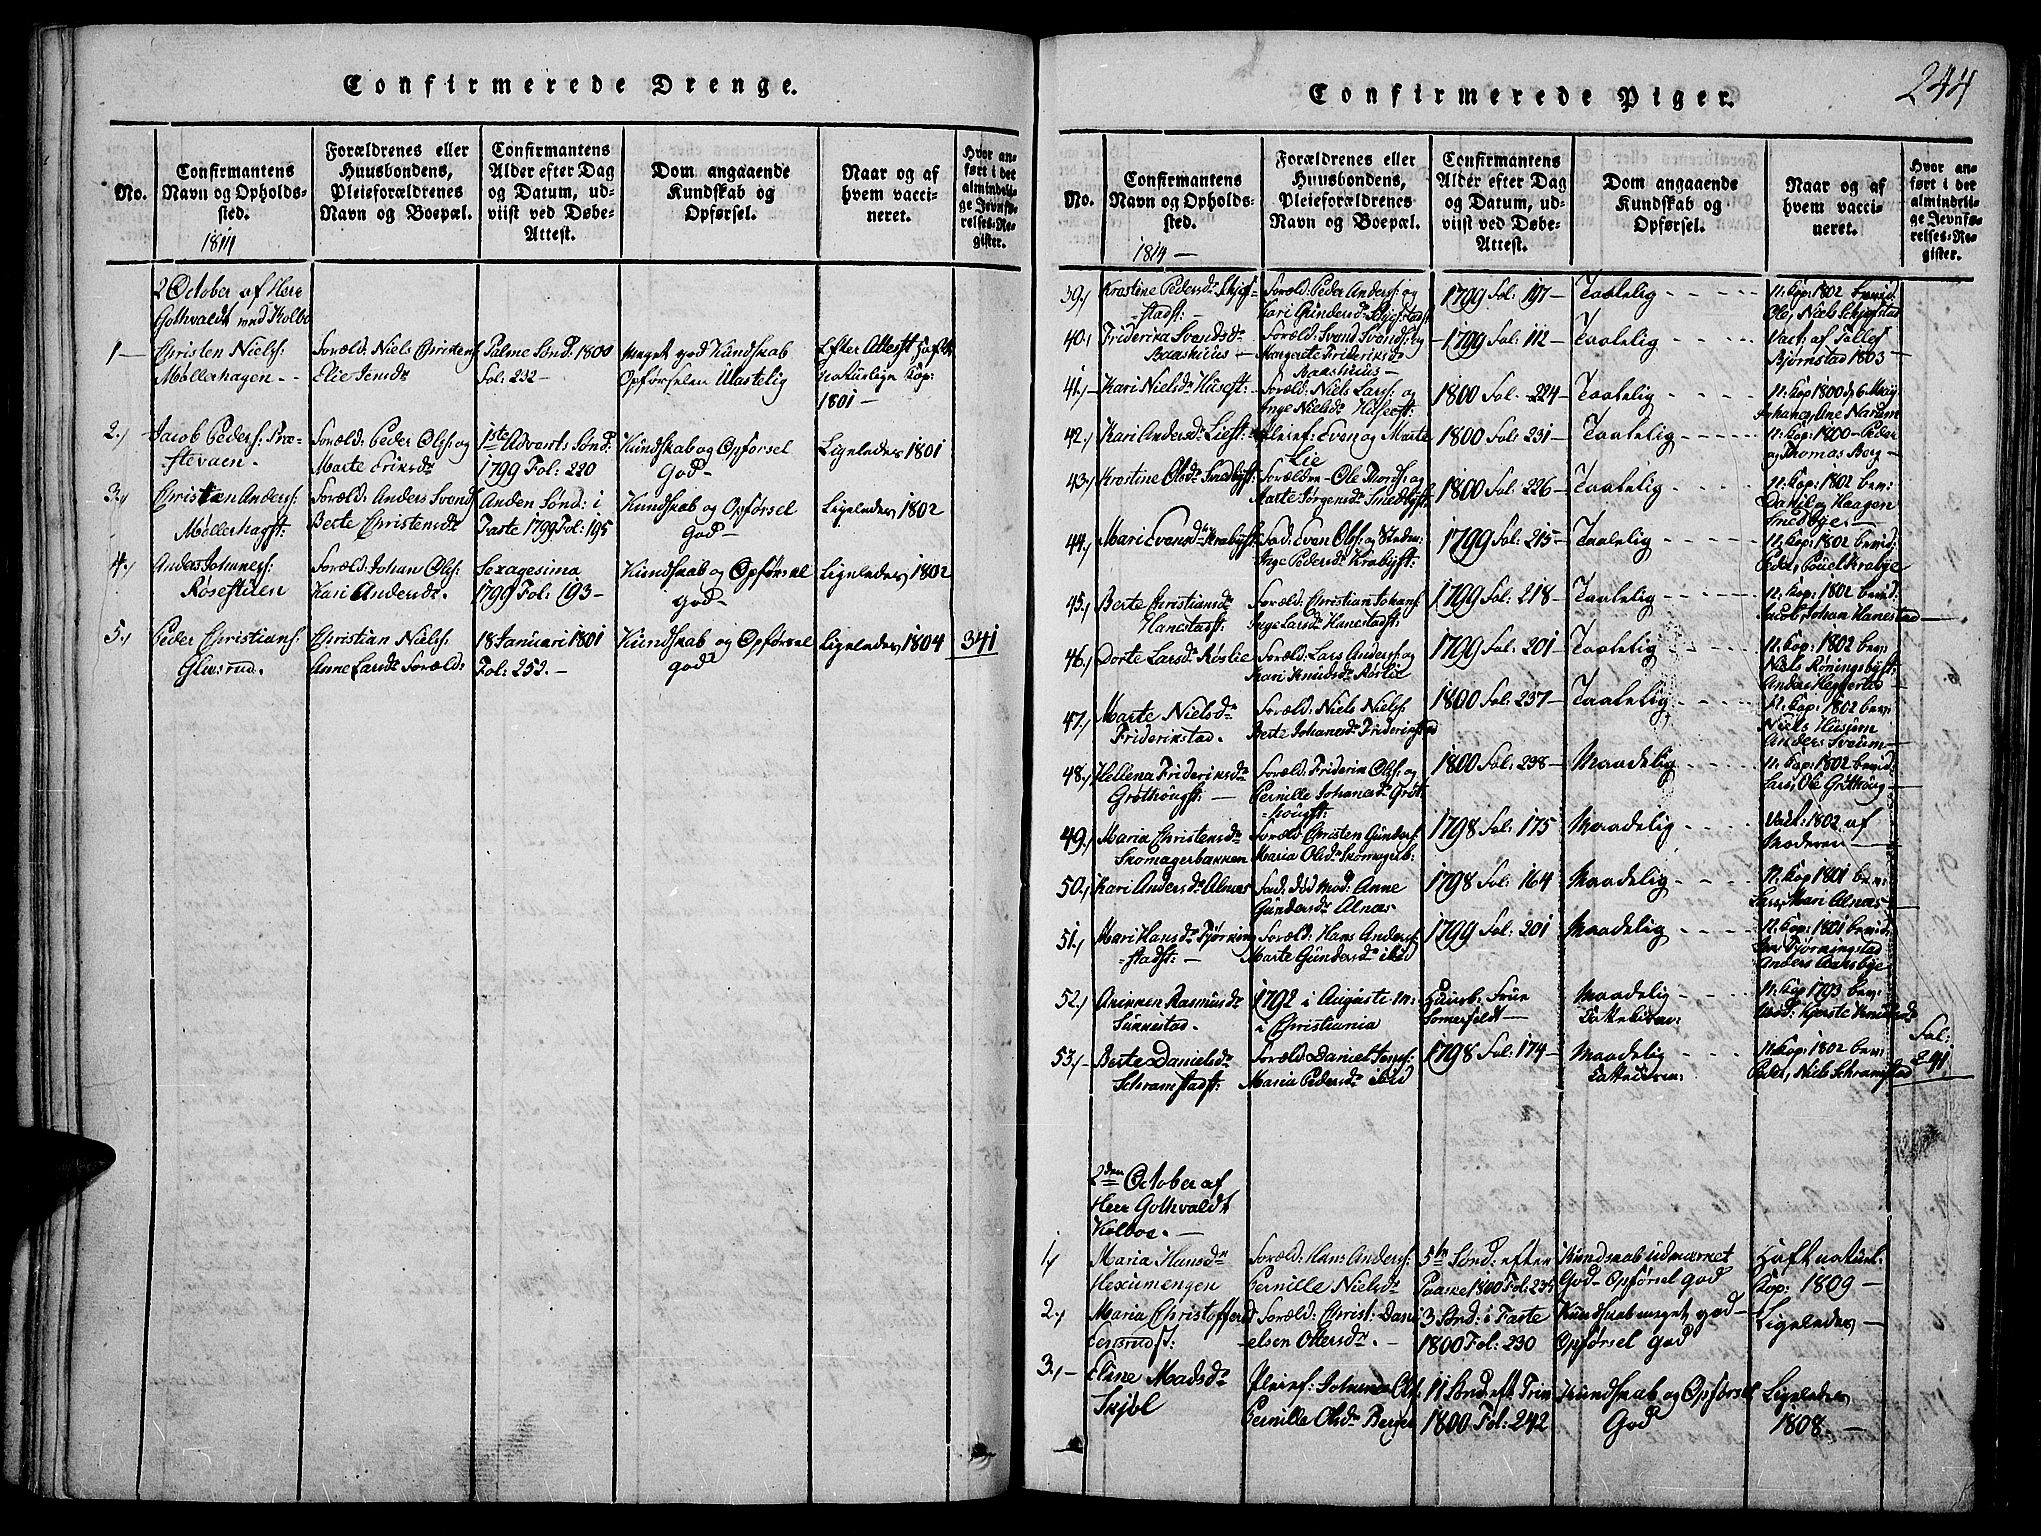 Confirmerede Drenge.
No.
Confirmantens
Navn og Opholds-
sted.
1814
Forældrenes eller
Huusbondens,
Pleieforældrenes
Navn og Boepæl.
Confirmantens
Alder efter Dag
og Datum, ud-
viist ved Døbe-
Attest.
Dom angaaende
Kundskab og
Opførsel.
Naar og af
hvem vacci-
neret.
Hvor an-
ført i det
almindeli-
ge Jevnfø-
relses-Re-
gister.
2 October af Herr
Gothvaldt ved Kolbo
1 —
Christen Niels:
Møllerhagen. -
Foræld: Niels Christens:
Elie Jensdr
Palme Sønd: 1800
Fol: 232 —
Meget god Kundskab
Opførselen Ulastelig
Efter Attest haft
naturlige Kop:
1801 —
2.)
Jacob Peders: Præ-
stevæen.
Foræld: Peder Ols: og
Marte Eriksdr
1ste Advents Sønd:
1799 Fol: 220
Kundskab og Opførsel
God —
Ligeledes 1801
3.)
Christian Anders:
Møllerhagst:
Foræld: Anders Svends:
Berte Christensdr
Anden Sønd: i
Faste 1799 Fol: 195
Kundskab og Opførsel
God —
Ligeledes 1802
4.)
Anders Johannes:
Røsestuen
Foræld: Johan Ols:
Kari Andersdr.
Sexagesima
1799 Fol: 193 —
Kundskab og Opførsel
god —
Ligeledes 1802
5.)
Peder Christians:
Gluserud.
Christian Niels:
Anne Larsdr Foræld:
18 Januari 1801
Fol: 252. —
Kundskab og Opførsel
god
Ligeledes 1804
341
244
Confirmerede Piger.
No.
Confirmantens
Navn og Opholds-
sted.
1814 —
Forældrenes eller
Huusbondens,
Pleieforældrenes
Navn og Boepæl.
Confirmantens
Alder efter Dag
og Datum, ud-
viist ved Døbe-
Attest.
Dom angaaende
Kundskab og
Opførsel.
Naar og af
hvem vacci-
neret.
Hvor an-
ført i det
almindeli-
ge Jevnfø-
relses-Re-
gister.
39.)
Krestine Pedersdr Skjef-
stadst: —
Foræld: Peder Anders: og
Kari Gundersdr Skjefstadst:
1799 Fol: 197 —
Taalelig
n: Kop: 1802 bevid:
Ole, Niels Schjefstad
40.)
Friderika Svendsdr
Baashuus —
Foræld: Svend Svends: og
Margrete Frideriksdr
Baashuus —
1799 Fol: 112 —
Taalelig
Vact: af Tallef
Bjørnstad 1803 —
41.)
Kari Nielsdr Husest:
Foræld: Niels Lars: og
Inge Nielsdr Husest:
1800 Fol. 224 —
Taalelig
n: Kop 1800 d. 6 Maij
Johanes, Ane Narum
42.)
Kari Andersdr Liest:
Pleief: Even og Marte
Lie
1800 Fol: 231 —
Taalelig
n: Kop: 1800 — Peder
og Thomas Berg —
43.)
Krestine Olsdr Smedbyst:
Forældre — Ole Thords: og
Marte Jørgensdr Smedbyst:
1800 Fol: 226 —
Taalelig
n: Kop: 1802 bev:
Daniel og Haagen
Smedbye. —
44.)
Mari Evensdr Krabyst:
Fad: Even Ols: og Stedm:
Inge Pedersdr Krabyst:
1799 Fol: 215 —
Taalelig
n: Kop: 1802 bevid:
Peder, Pouel Krabye
45.)
Berte Christiansdr
Hanestadst:
Foræld: Christian Johans:
Inge Larsdr Hanestadst:
1799 Fol: 218 —
Taalelig
n: Kop: 1802 bevid:
Jacob, Johan Hanestad
46.)
Dorte Larsdr Røslie
Foræld: Lars Anders: og
Kari Knudsdr Røslie
1799 Fol: 201 —
Taalelig
n: Kop: 1802 bev:
Niels Røningsbyst:
47.)
Marte Nielsdr
Friderikstad.
Foræld: Niels Niels:
Berte Johanesdr Frideriksstad
1800 Fol: 237 —
Taalelig
n: Kop: 1802 bev:
Niels Husum
Anders Sveum —
48.)
Hellena Frideriksdr
Grøthougst: —
Foræld: Friderik Ols: og
Pernille Johanesdr Grøt-
hougst:
1800 Fol: 238 —
Maadelig
n: Kop: 1802 bevid:
Lars, Ole Grøthoug —
49.)
Maria Christensdr
Skomagerbakken
Foræld: Christen Gunders:
Maria Olsdr Skomagerb:
1798 Fol: 175
Maadelig
Vact: 1802. af
Moderen —
50.)
Kari Andersdr Alnæs
Fad: død Mod: Anne
Gundersdr Alnæs
1798 Fol: 164
Maadelig
n: Kop 1801 bev:
Lars, Mari Alnæs —
51.)
Mari Hansdr Tjørning-
stadst: —
Foræld: Hans Anders:
Marte Gundersdr ibid
1799 Fol: 201
Maadelig
n: Kop: 1801 bevid:
Anders Aarsbye
52.)
Anikken Rasmusdr
Sukkestad.
1792 i Auguste M:
i Christiania
Huusb: Frue
Somerfeldt —
Maadelig
n: Kop 1793 bev:
53.)
Berte Danielsdr
Schramstadst:
Foræld: Daniel Jens:
Maria Pedersdr ibid
1798 Fol: 174 —
Maadelig
n: Kop: 1802 bev:
Peder, Niels Schramstad
Fol:
241
2den October af
Herr Gothvaldt
Kolboe. —
1)
Maria Hansdr
Hexumengen
Foræld: Hans Anders:
Pernille Nielsdr
5te Sønd: efter
Paaske 1800 Fol: 235
Kundskab udmærket
God — Opførsel God
Haft naturl:
Kop: 1809 —
2.)
Maria Christoffersdr
Foræld: Christ: Dani-
elsen Ottersdr. —
3 Sønd: i Faste
1800 Fol: 230
Kundskab meget god —
Opførsel God
Ligeledes —
3.) —
Eline Madsdr
Skjøl
Pleief: Johannes Ols:
Pernille Olsdr Berger
11 Sønd: eft Trin
1800 Fol: 242
Kundskab og Opførsel
God
Ligeledes
1808 —